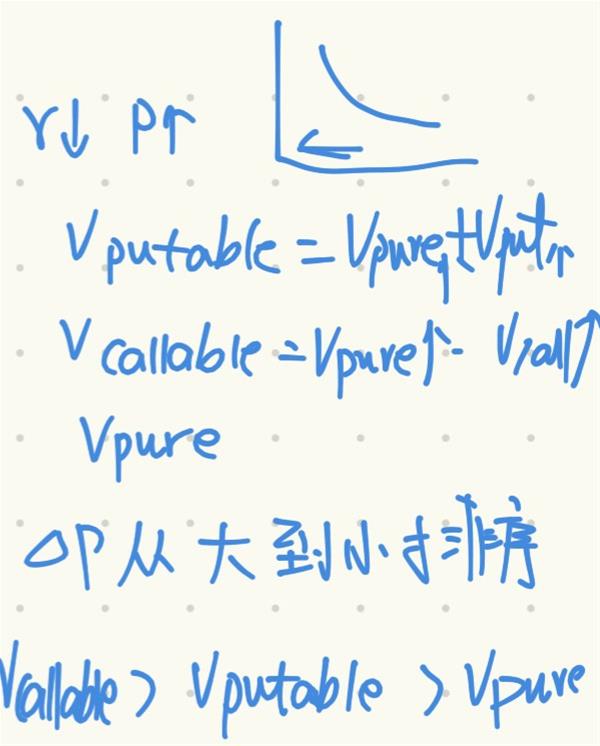 r↓ P↑
Vputable = Vpure↑ + Vput↑
Vcallable = Vpure↑ - Vcall↑
Vpure
△P 从大到小排序
Vcallable > Vputable > Vpure